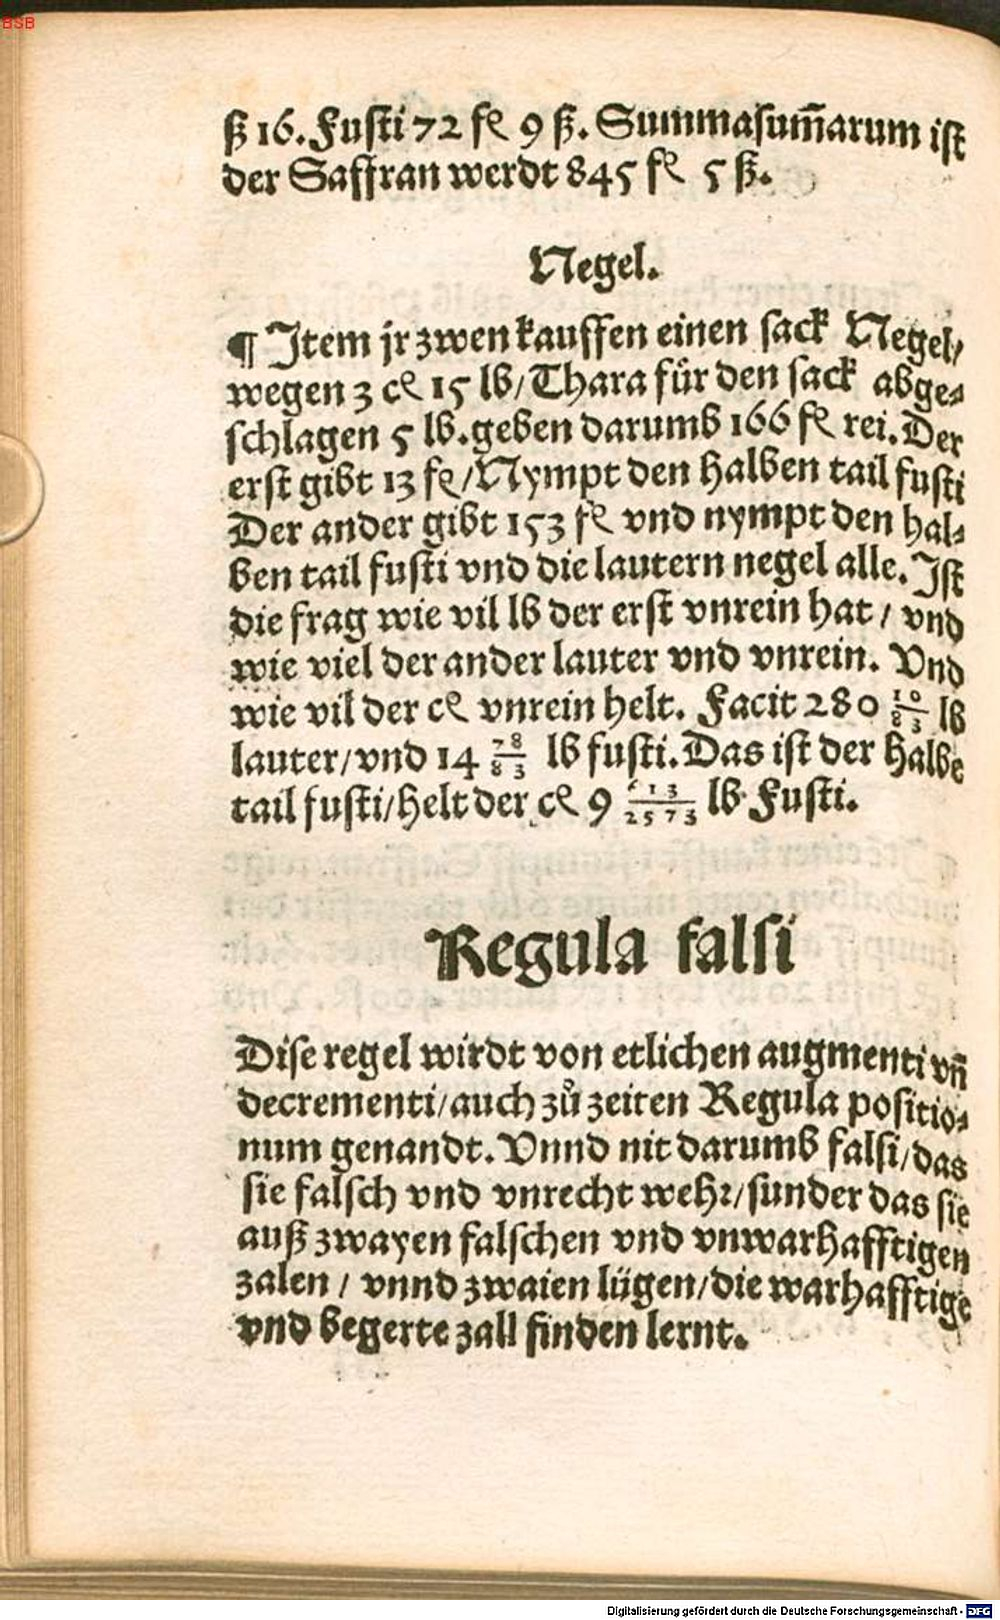 BSB
ß 16. Fusti 72 fl 9 ß. Summasum̃arum ist
der Saffran werdt 845 fl 5 ß.
Negel.
¶ Item jr zwen kauffen einen sack Negel/
wegen 3 cl 15 lb/Thara für den sack abge⸗
schlagen 5 lb. geben darumb 166 fl rei. Der
erst gibt 13 fl/Nympt den halben tail fusti
Der ander gibt 153 fl vnd nympt den hal⸗
ben tail fusti vnd die lautern negel alle. Ist
die frag wie vil lb der erst vnrein hat / vnd
wie viel der ander lauter vnd vnrein. Vnd
wie vil der cl vnrein helt. Facit 280 10/83 lb
lauter/vnd 14 78/83 lb fusti. Das ist der halbe
tail fusti/helt der cl 9 613/2573 lb Fusti.
Regula falsi
Dise regel wirdt von etlichen augmenti vñ
decrementi/auch zů zeiten Regula positio⸗
num genandt. Vnnd nit darumb falsi/das
sie falsch vnd vnrecht wehr/sunder das sie
auß zwayen falschen vnd vnwarhafftigen
zalen / vnnd zwaien lügen/die warhafftige
vnd begerte zall finden lernt.
Digitalisierung gefördert durch die Deutsche Forschungsgemeinschaft - DFG